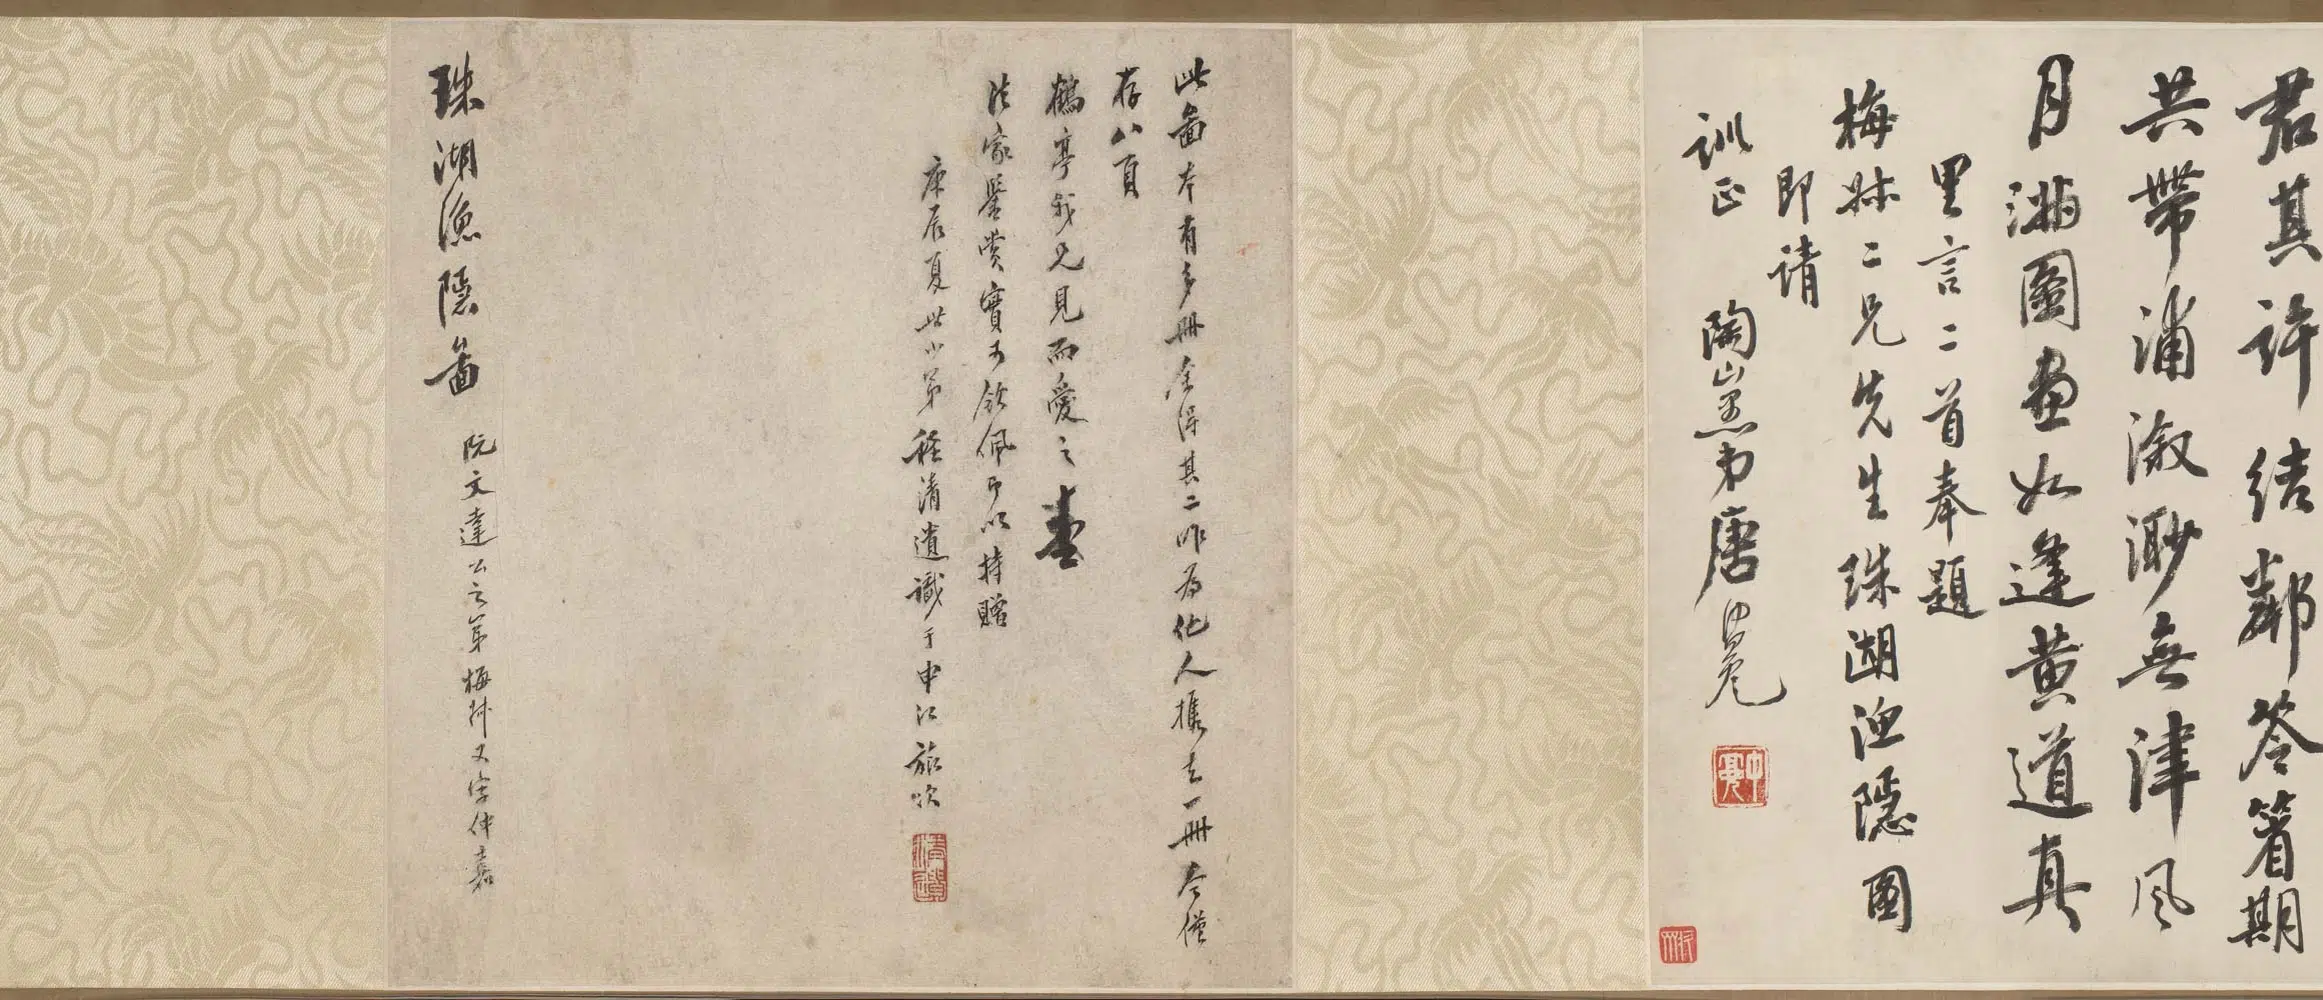 君其許結鄰答箸期
共帶浦漵渺無津風
月滿圖畫如逢黄道真
里言二首奉題
梅叔二兄先生珠湖漁隱圖
即請
訓正
陶山愚弟唐仲冕
仲冕
此圖本有多冊余得其二昨為他人攜去一冊今僅
存八頁
鶴亭我兄見而愛之
法家鑒賞實可欽佩即以持贈
庚辰夏世小弟程清遺識于申江旅次
清遺
珠湖漁隱圖
阮文達公之弟梅叔又字仲嘉